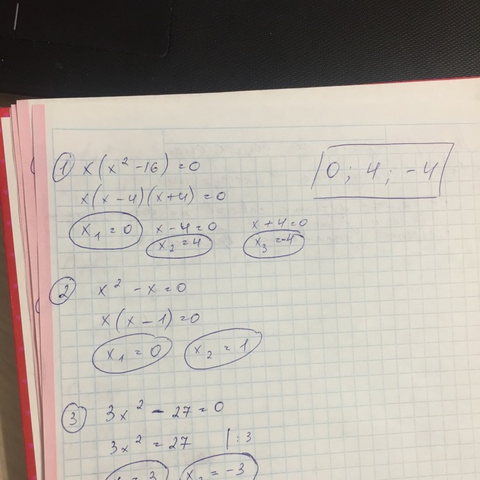 1 x(x² -16)=0
0; 4; -4
x(x-4)(x+4)=0
x₁=0 x-4=0 x+4=0
x₂=4 x₃=-4
2 x² -x=0
x(x-1)=0
x₁=0 x₂=1
3 3x² -27=0
3x²=27 |:3
=3 x₂=-3